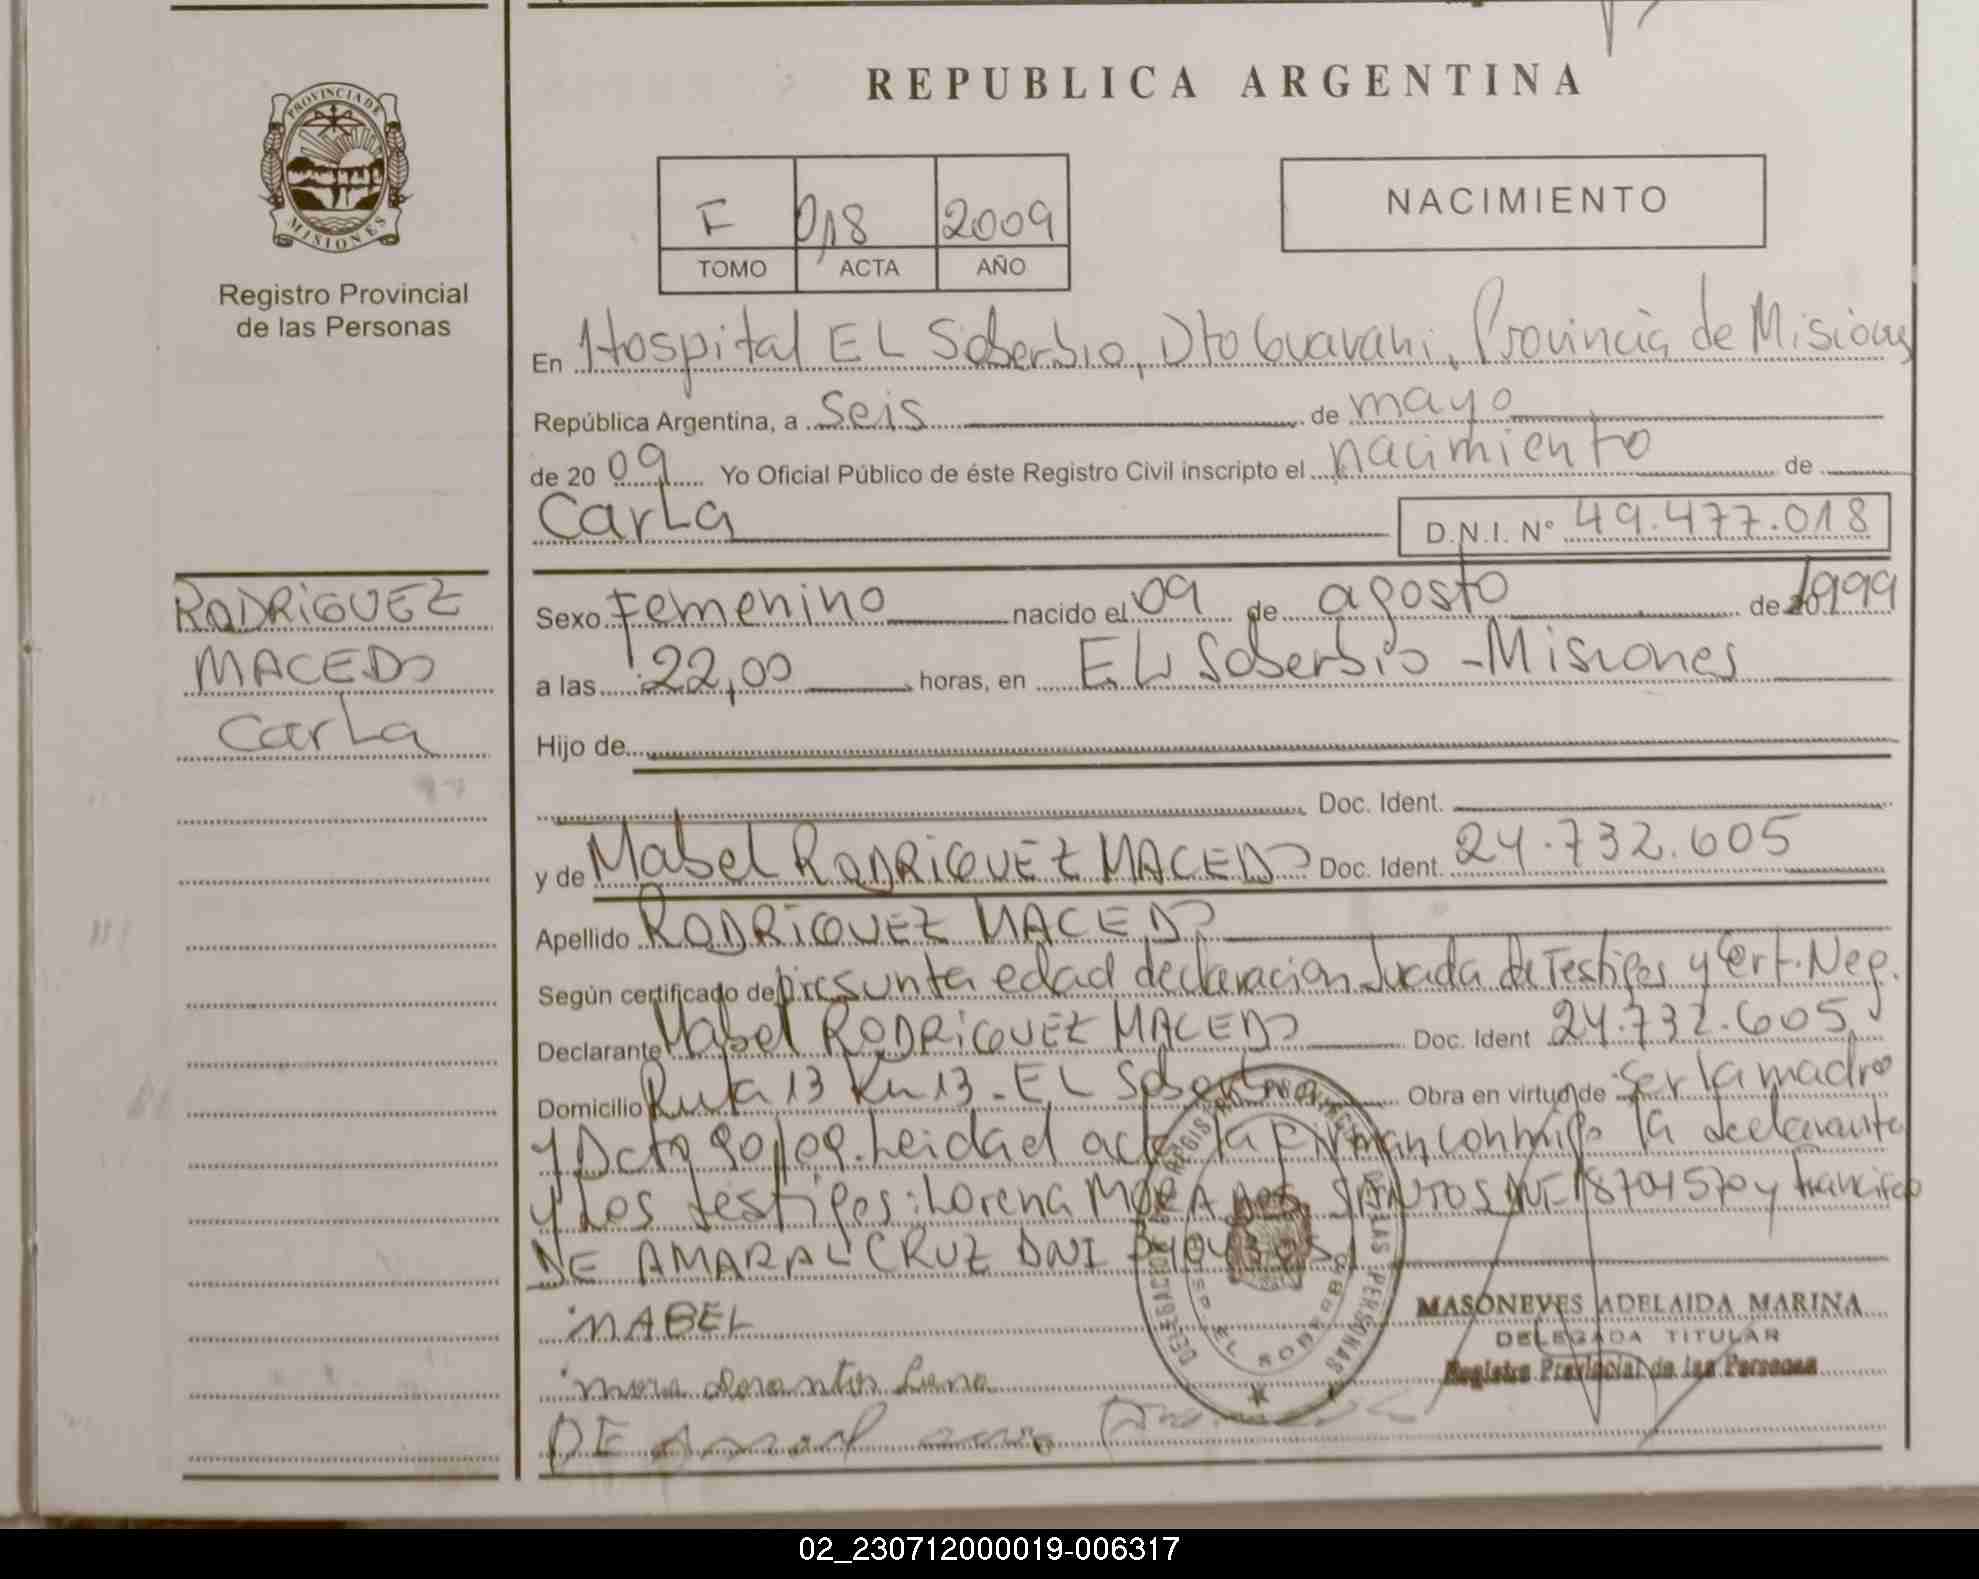 REPUBLICA ARGENTINA
PROVINCIA DE
MISIONES
Registro Provincial
de las Personas
F 018 2009
TOMO ACTA AÑO
NACIMIENTO
En Hospital EL Soberbio, Dto Guarani, Provincia de Misiones
República Argentina, a seis de mayo
de 20 09 Yo Oficial Público de éste Registro Civil inscripto el nacimiento de
CarLa D.N.I. Nº 49.477.018
RODRiGUEZ
MACEDO
CarLa
Sexo Femenino nacido el 09 de agosto de 1999
a las 22,00 horas, en EL Soberbio - Misiones
Hijo de
Doc. Ident.
y de Mabel RODRiGUEZ MACEDO Doc. Ident. 24.732.605
Apellido RODRiGUEZ MACEDO
Según certificado de presunta edad declaracion Jurada de Testigos y Cert. Neg.
Declarante Mabel RODRiGUEZ MACEDO Doc. Ident 24.732.605
Domicilio Ruta 13 Km 13 - EL Soberbio Obra en virtud de ser la madre
y Dcto 90/09. Leida el acta la firman conmigo la declarante
y Los testigos: Lorena MORA DOS SANTOS DNI 18704570 y Francisco
DE AMARAL CRUZ DNI
MABEL
DE
MASONEVES ADELAIDA MARINA
DELEGADA TITULAR
Registro Provincial de las Personas
02_230712000019-006317